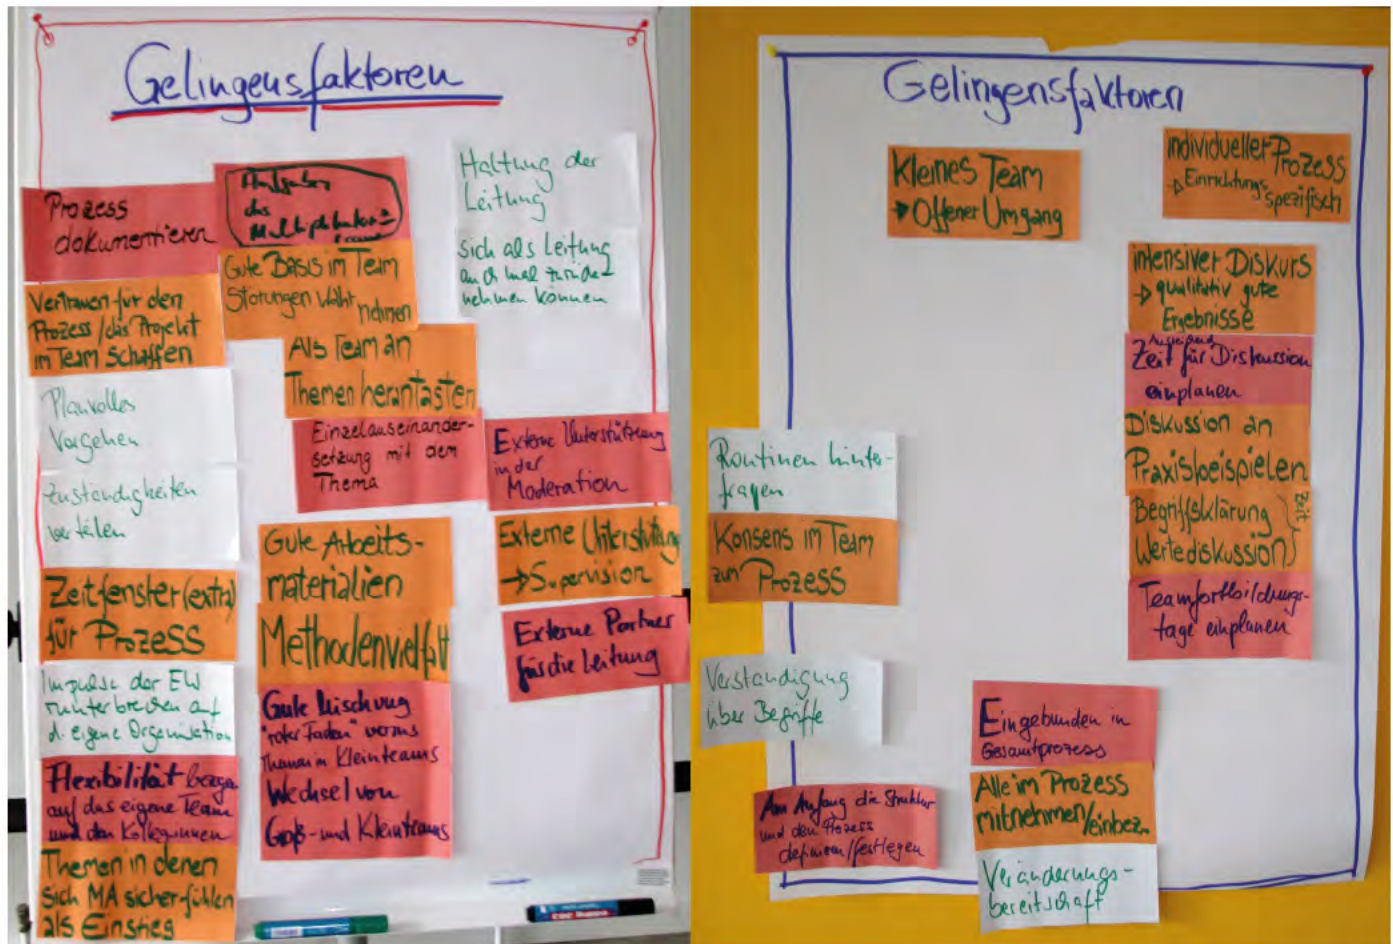 Gelingensfaktoren
Prozess
dokumentieren
Vertrauen für den
Prozess/das Projekt
im Team schaffen
Planvolles
Vorgehen
Zuständigkeiten
verteilen
Zeitfenster (extra)
für Prozess
Impulse der EW
runterbrechen auf
d. eigene Organisation
Flexibilität bezogen
auf das eigene Team
und den Kolleginnen
Themen in denen
sich MA sicher fühlen
als Einstieg
Aufgaben
des
Multiplikator=
Gute Basis im Team
Störungen wahrnehmen
Als Team an
Themen herantasten
Einzelauseinander-
setzung mit dem
Thema
Gute Arbeits-
materialien
Methodenvielfalt
Gute Mischung
"roter Faden" versus
Themen in Kleinteams
Wechsel von
Groß- und Kleinteams
Haltung der
Leitung
sich als Leitung
auch mal zurück-
nehmen können
Externe Unterstützung
in der
Moderation
Externe Unterstützung
→ Supervision
Externe Partner
für die Leitung
Gelingensfaktoren
Kleines Team
→ Offener Umgang
individueller Prozess
→ Einrichtungs-
spezifisch
intensiver Diskurs
→ qualitativ gute
Ergebnisse
Zeit für Diskussion
einplanen
Diskussion an
Praxisbeispielen
Begriffsklärung
Wertediskussion } Zeit
Teamfortbildungs-
tage einplanen
Routinen hinter-
fragen
Konsens im Team
zum Prozess
Verständigung
über Begriffe
Am Anfang die Struktur
und den Prozess
definieren/festlegen
Eingebunden in
Gesamtprozess
Alle im Prozess
mitnehmen/einbez.
Veränderungs-
bereitschaft